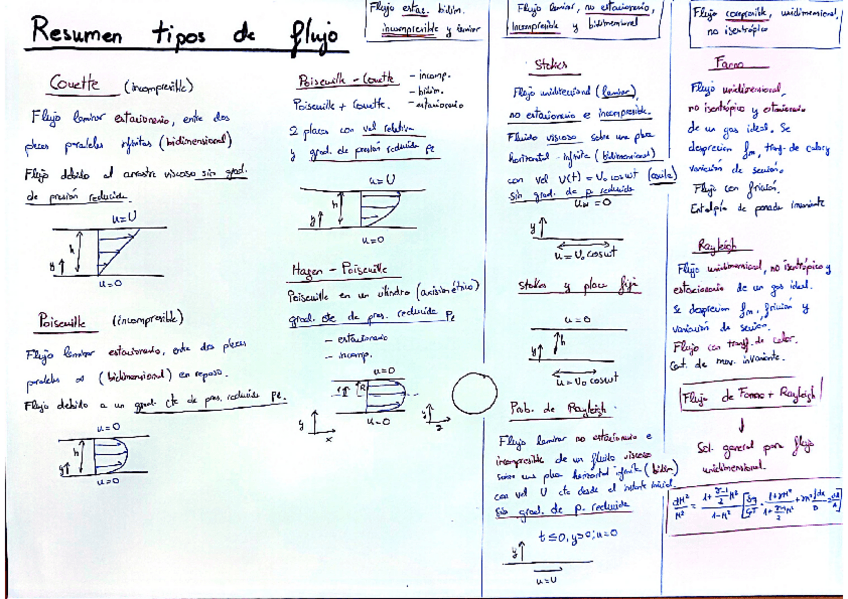 Resumen tipos de flujo
Couette (incompresible)
Flujo laminar estacionario, entre dos
placas paralelas infinitas (bidimensional)
Flujo debido al arrastre viscoso sin grad.
de presión reducida.
u=U
h
y
u=0
Poiseuille (incompresible)
Flujo laminar estacionario, entre dos placas
paralelas ∞ (bidimensional) en reposo.
Flujo debido a un grad. cte de pres. reducida Pe.
u=0
h
y
u=0
Flujo estac. bidim.
incompresible y laminar
Poiseuille - Couette
- incomp.
- bidim.
- estacionario
Poiseuille + Couette.
2 placas con vel relativa
y grad. de presión reducida Pe
u=U
h
y
u=0
Hagen - Poiseuille
Poiseuille en un cilindro (axisimétrico)
grad. cte de pres. reducida Pe
- estacionario
- incomp.
u=0
R
u=0
y
x
y
z
Flujo laminar, no estacionario,
incompresible y bidimensional
Stokes
Flujo unidireccional (laminar),
no estacionario e incompresible.
Fluido viscoso sobre una placa
horizontal infinita (bidimensional)
con vel U(t) = U₀ cos ωt (oscila)
Sin grad. de p. reducida
u∞ = 0
y
u = U₀ cos ωt
Stokes y placa fija
u=0
y
h
u=U₀ cos ωt
Prob. de Rayleigh.
Flujo laminar no estacionario e
incompresible de un fluido viscoso
sobre una placa horizontal infinita (bidim)
con vel U cte desde el instante inicial.
Sin grad. de p. reducida
t≤0, y>0; u=0
y
u=U
Flujo compresible, unidimensional,
no isentrópico
Fanno
Flujo unidimensional,
no isentrópico y estacionario
de un gas ideal. Se
desprecian fm, transf. de calor y
variación de sección.
Flujo con fricción.
Entalpía de parada invariante
Rayleigh
Flujo unidimensional, no isentrópico y
estacionario de un gas ideal.
Se desprecian fm, fricción y
variación de sección.
Flujo con transf. de calor.
Cant. de mov. invariante.
Flujo de Fanno + Rayleigh
Sol. general para flujo
unidimensional.